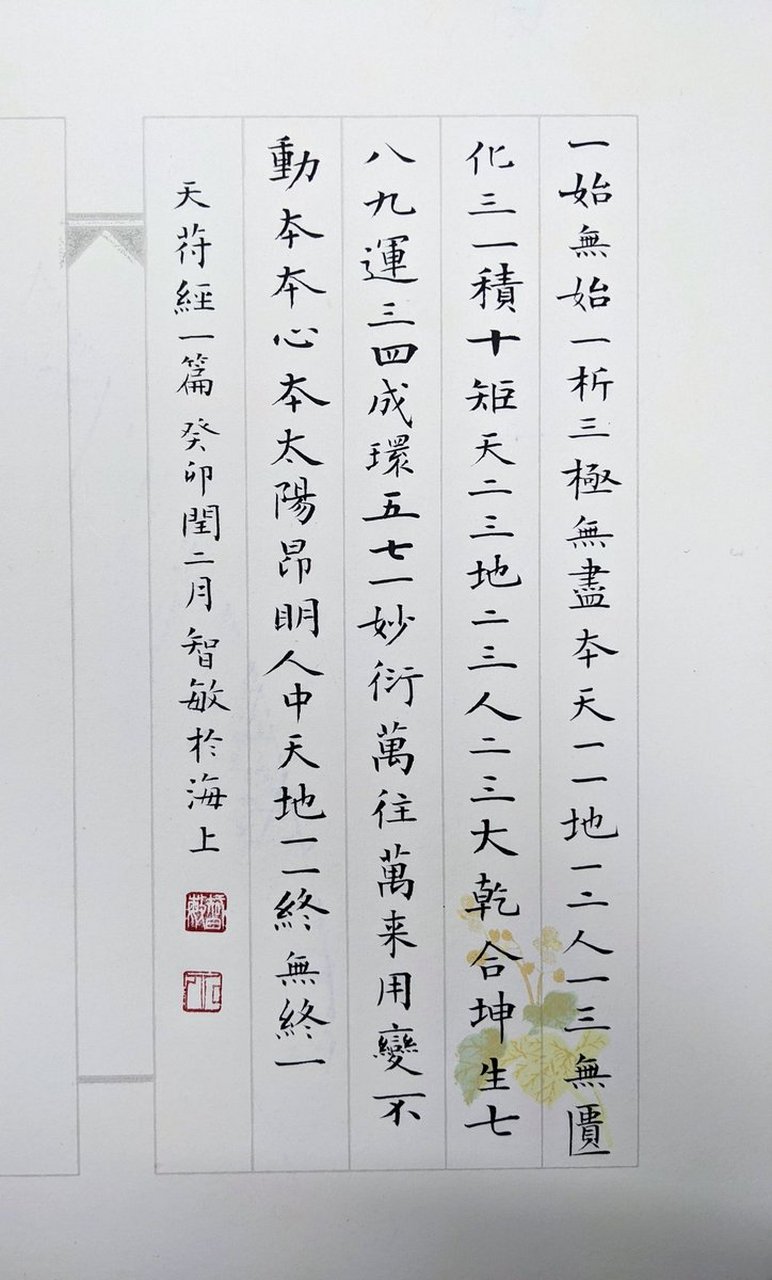 一始無始一析三極無盡本天一一地一二人一三無匱
化三一積十矩天二三地二三人二三大乾合坤生七
八九運三四成環五七一妙衍萬往萬来用變不
動本本心本太陽昂明人中天地一一終無終一
天苻經一篇癸卯閏二月智敏於海上
智敏